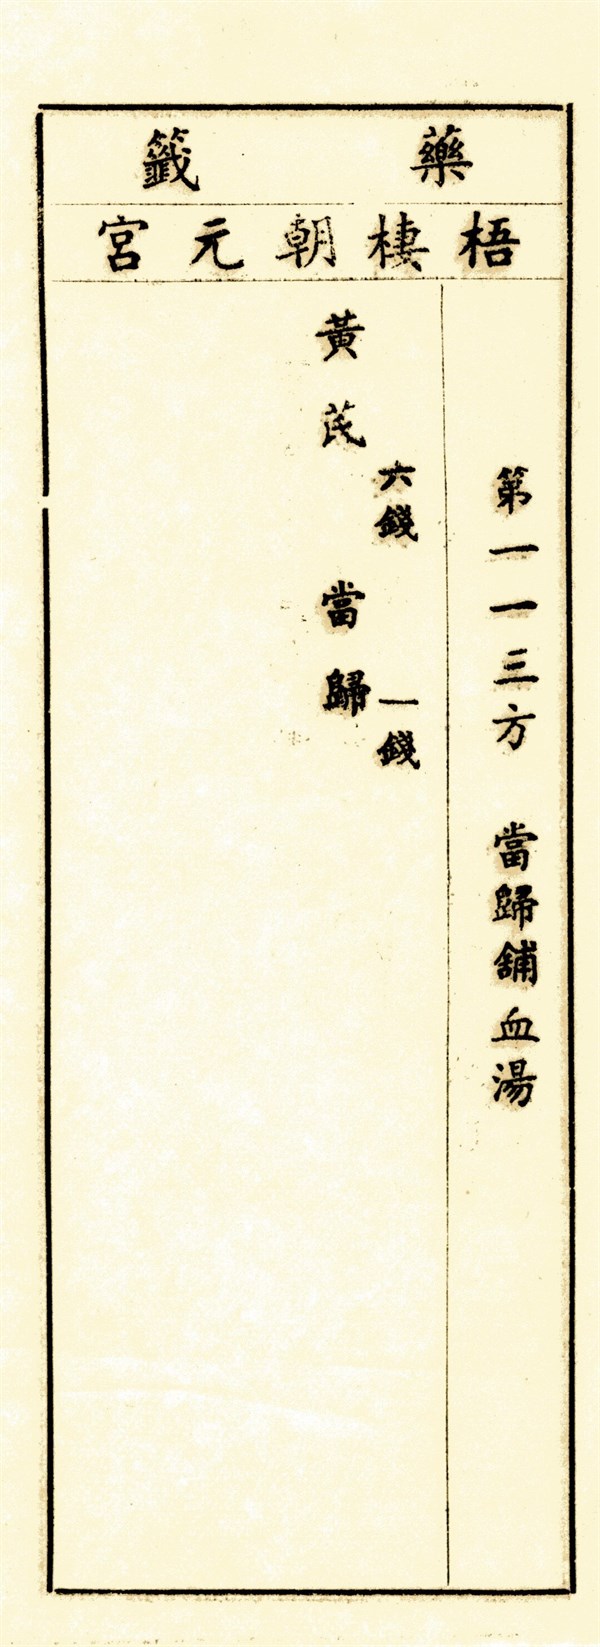 藥籤
梧棲朝元宮
第一一三方 當歸舖血湯
黃芪 六錢 當歸 一錢